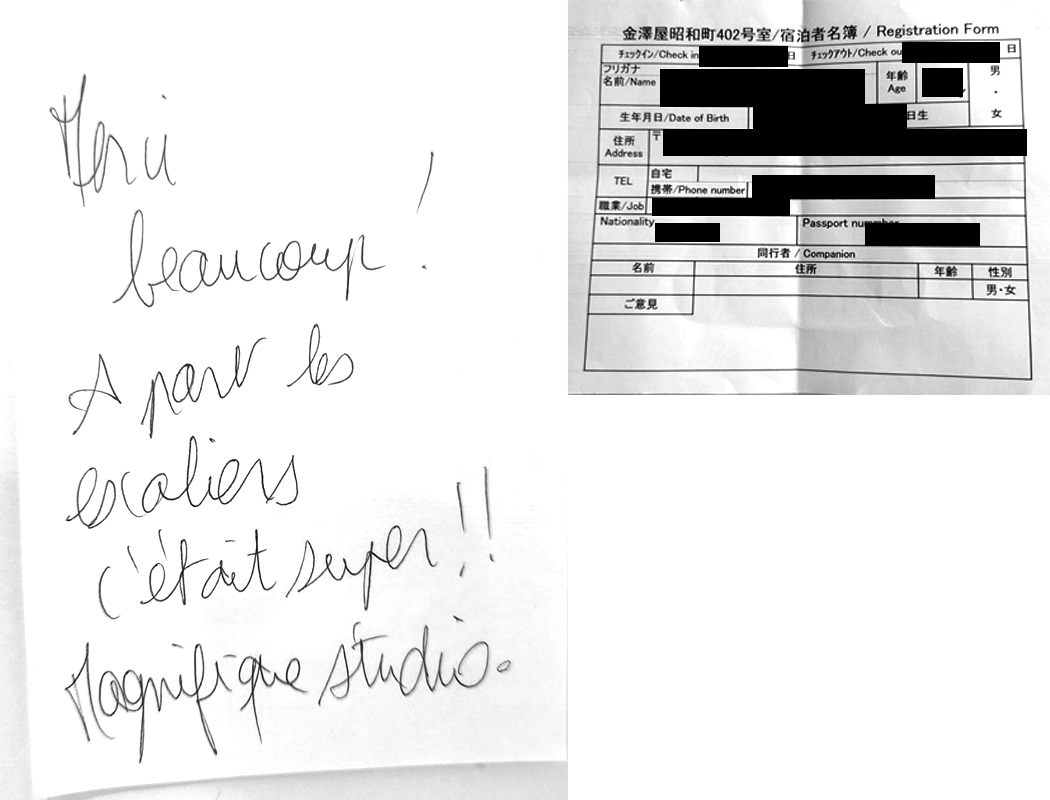 Merci
beaucoup !
A part les
escaliers
c'était super !!
Magnifique studio.
金澤屋昭和町402号室/宿泊者名簿 / Registration Form
チェックイン/Check in 日 チェックアウト/Check ou 日
フリガナ
名前/Name
年齢
Age
男
・
女
生年月日/Date of Birth 日生
住所
Address
〒
TEL
自宅
携帯/Phone number
職業/Job
Nationality Passport number
同行者 / Companion
名前 住所 年齢 性別
男・女
ご意見